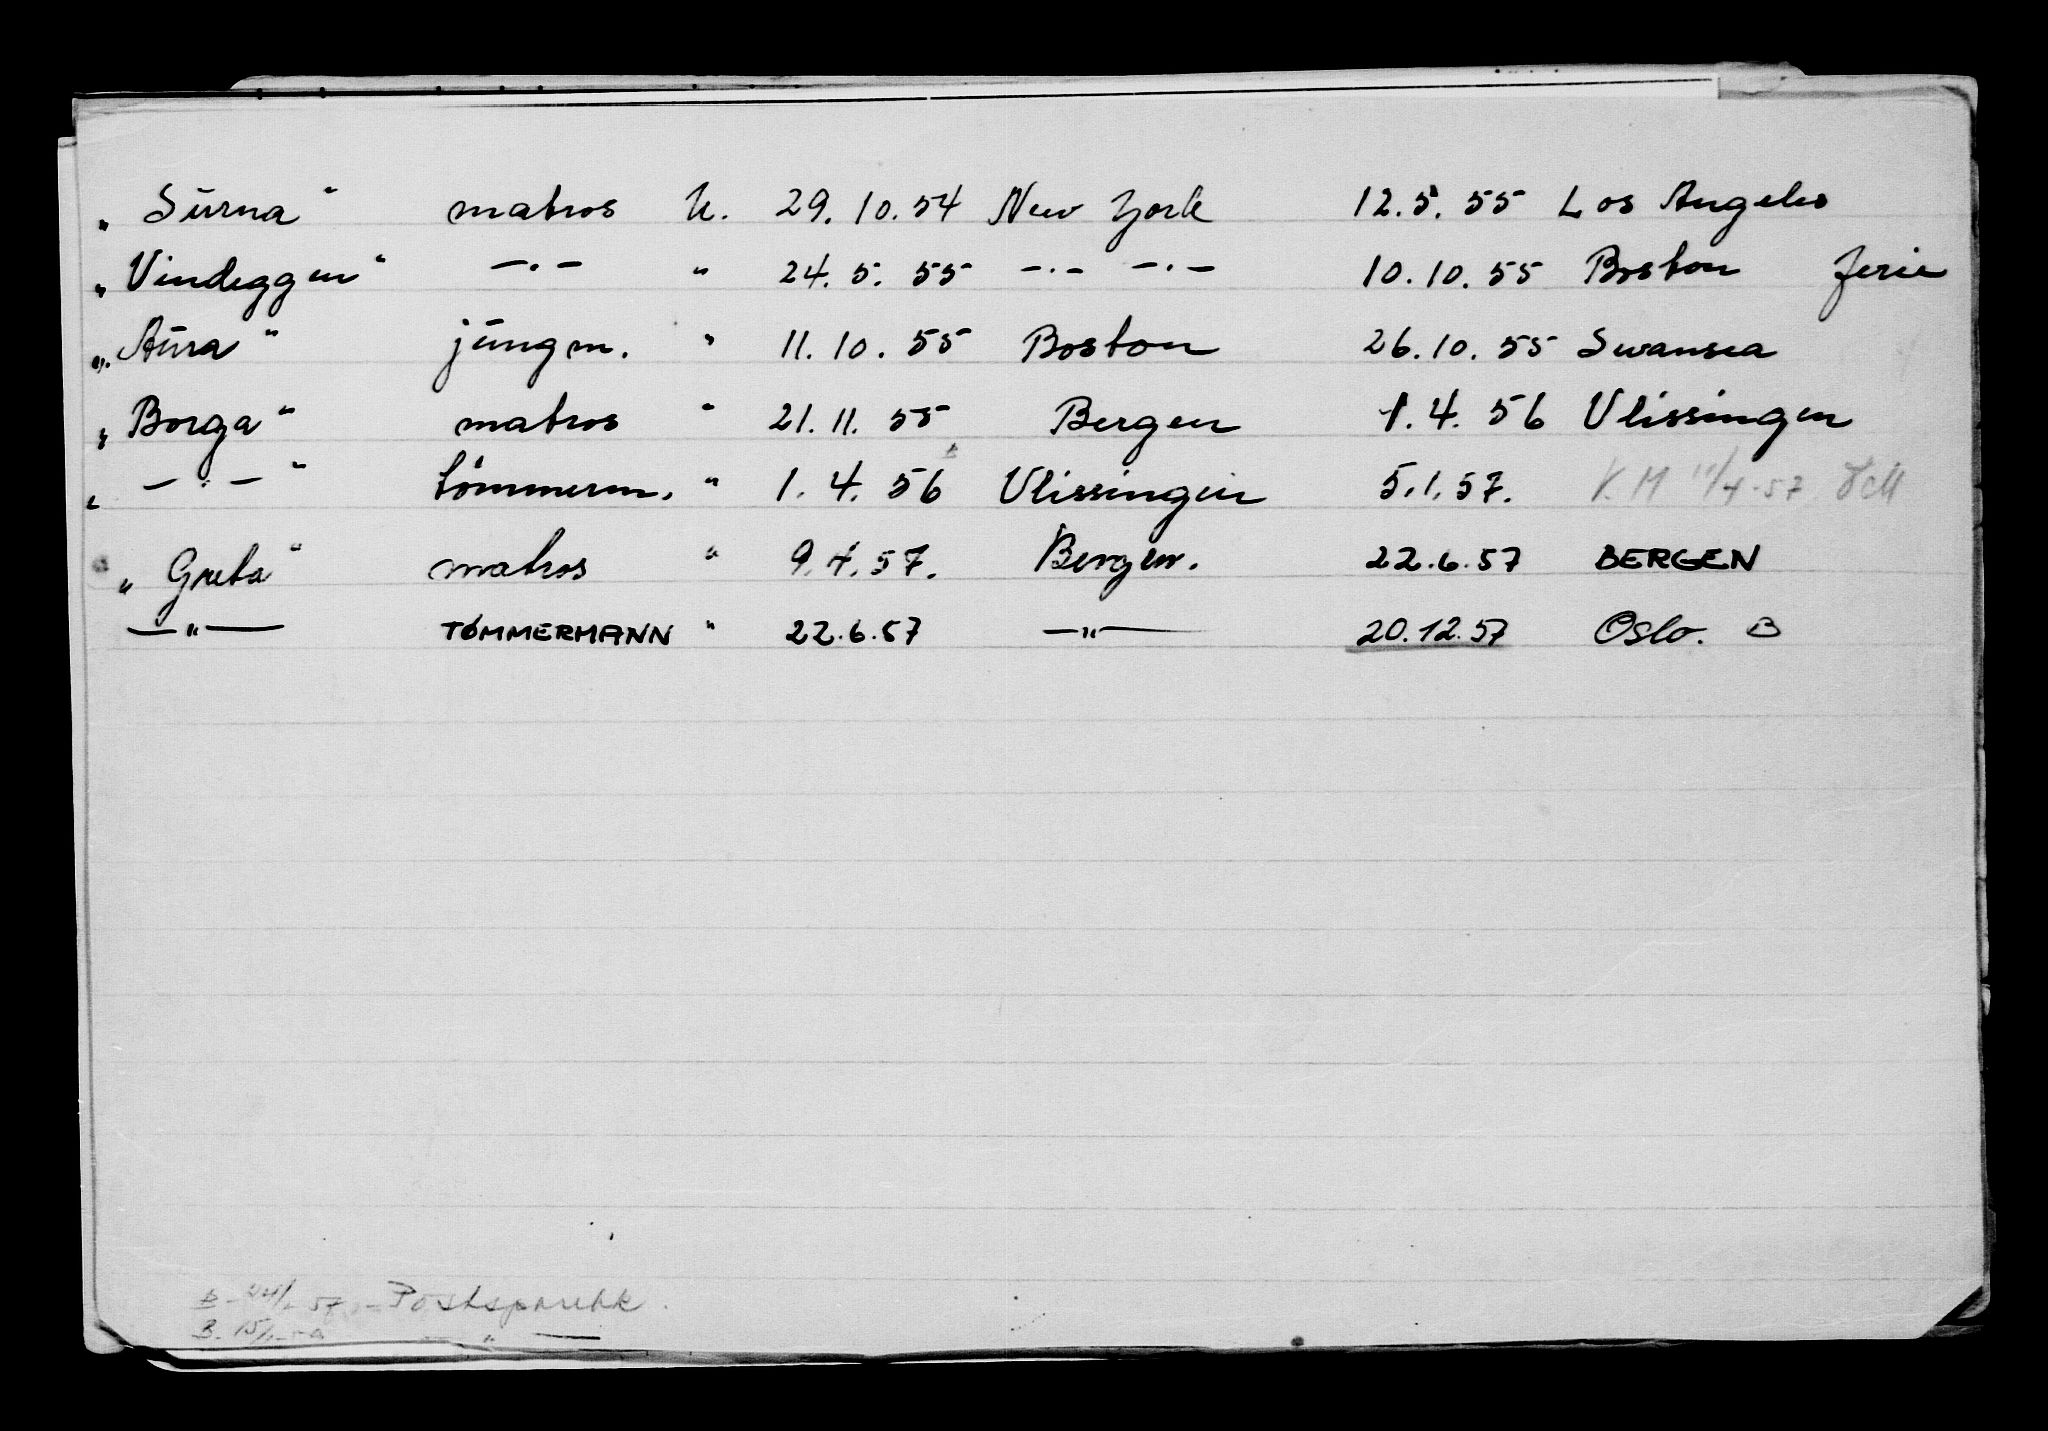 „ Surna " matros U. 29.10.54 New York 12.5.55 Los Angeles
„ Vindeggen " —·— " 24.5.55 —·— —·— 10.10.55 Boston ferie
„ Aura " jungm. " 11.10.55 Boston 26.10.55 Swansea
„ Borga " matros " 21.11.55 Bergen 1.4.56 Vlissingen
„ —·— " tømmerm. " 1.4.56 Vlissingen 5.1.57. V.M 11/4-57
„ Greta " matros " 9.4.57. Bergen. 22.6.57 BERGEN
—"— TØMMERMANN " 22.6.57 —"— 20.12.57 Oslo. B
B - 57 - Postsparebk.
B. 15/1 — " —